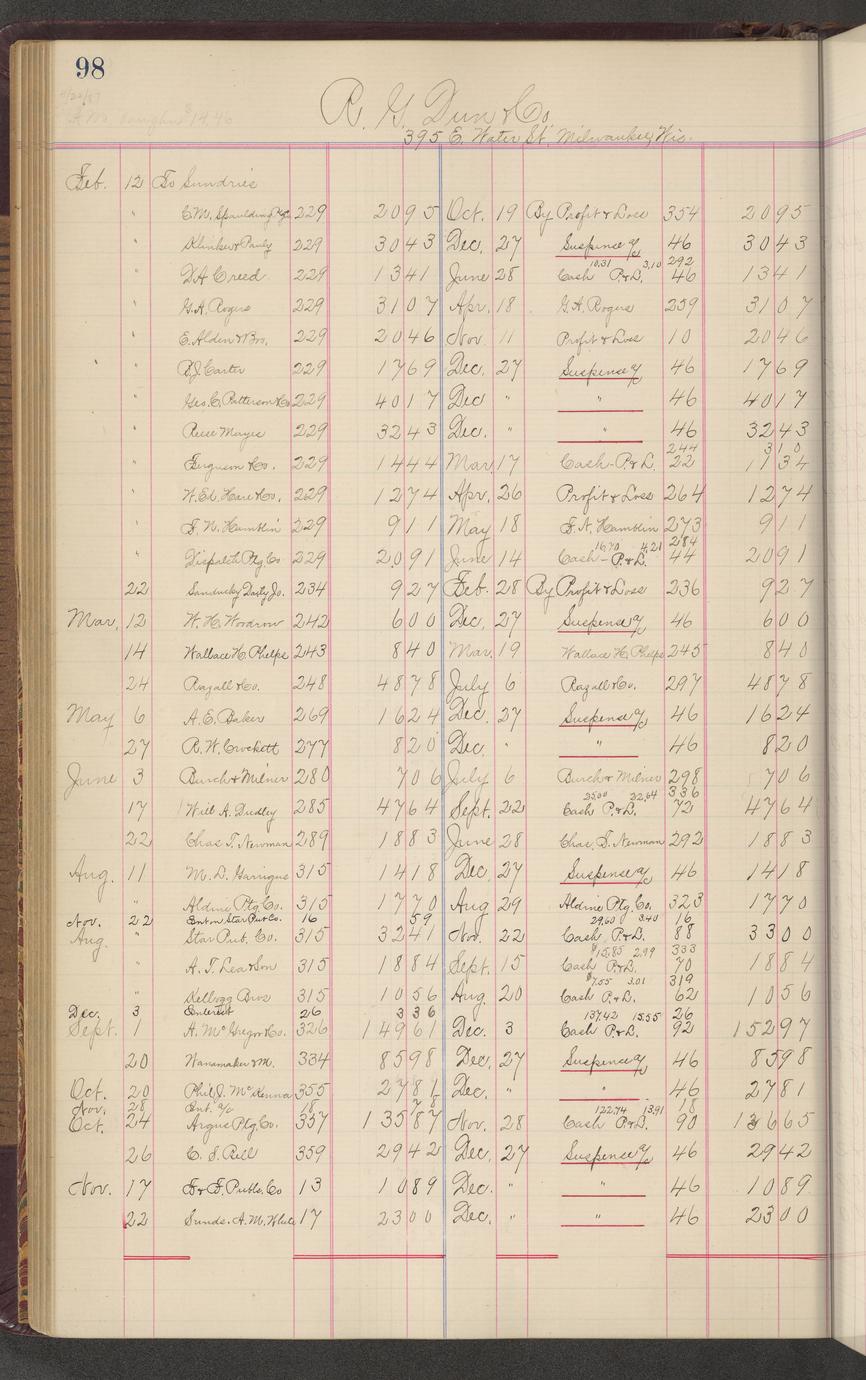 98
R. G. Dun & Co.
395 E. Water St, Milwaukee, Wis.
Feb. 12 To Sundries
" C. M. Spaulding 229 2095 Oct. 19 By Profit & Loss 354 2095
" Klinker & Pauly 229 3043 Dec. 27 Suspense a/c 46 3043
10.31 3.10 292
" D. A. Creed 229 1341 June 28 Cash P. & L. 46 1341
" G. A. Rogers 229 3107 Apr. 18 G. A. Rogers 259 3107
" E. Alden & Bro. 229 2046 Nov. 11 Profit & Loss 10 2046
" B. J. Carter 229 1769 Dec. 27 Suspense a/c 46 1769
" Geo. C. Patterson & Co 229 4017 Dec " " 46 4017
" Reese Mayes 229 3243 Dec. " " 46 3243
244 310
" Ferguson & Co. 229 1444 Mar. 17 Cash - P. & L. 22 1134
" W. Ed. Hare & Co. 229 1274 Apr. 26 Profit & Loss 264 1274
" F. N. Hamblin 229 911 May 18 F. N. Hamblin 273 911
16.70 4.21 284
" Dispatch Ptg Co 229 2091 June 14 Cash - P. & L. 44 2091
22 Sandusky Daily Jo. 234 927 Feb. 28 By Profit & Loss 236 927
Mar. 12 W. H. Woodrow 242 600 Dec. 27 Suspense a/c 46 600
14 Wallace H. Phelps 243 840 Mar. 19 Wallace H. Phelps 245 840
24 Ragall & Co. 248 4878 July 6 Ragall & Co. 297 4878
May 6 A. E. Baker 269 1624 Dec. 27 Suspense a/c 46 1624
27 R. W. Crockett 277 820 Dec. " " 46 820
June 3 Burch & Milner 280 706 July 6 Burch & Milner 298 706
25.00 22.64 336
17 Will A. Dudley 285 4764 Sept. 22 Cash P. & L. 72 4764
22 Chas. T. Newman 289 1883 June 28 Chas. T. Newman 292 1883
Aug. 11 M. D. Garrigus 315 1418 Dec. 27 Suspense a/c 46 1418
" Aldine Ptg. Co. 315 1770 Aug 29 Aldine Ptg. Co. 323 1770
Nov. 22 Int on Star Pub Co. 16 59 29.60 3.40 16
Aug. " Star Pub. Co. 315 3241 Nov. 22 Cash P. & L. 88 3300
$15.85 2.99 333
" A. T. Lea & Son 315 1884 Sept. 15 Cash P. & L. 70 1884
$7.55 3.01 319
" Kellogg Bros 315 1056 Aug. 20 Cash P. & L. 62 1056
Dec. 3 Interest 26 336 137.42 15.55 26
Sept. 1 A. McGregor & Co. 326 14961 Dec. 3 Cash P. & L. 92 15297
20 Wanamaker & M. 334 8598 Dec. 27 Suspense a/c 46 8598
Oct. 20 Phil. J. McKenna 355 2781 Dec. " " 46 2781
Nov. 28 Int. a/c 18 78 122.74 13.91 18
Oct. 24 Argus Ptg. Co. 357 13587 Nov. 28 Cash P. & L. 90 13665
26 C. S. Rell 359 2942 Dec. 27 Suspense a/c 46 2942
Nov. 17 Publs. Co 13 1089 Dec. " " 46 1089
22 Sunds. A. M. White 17 2300 Dec. " " 46 2300